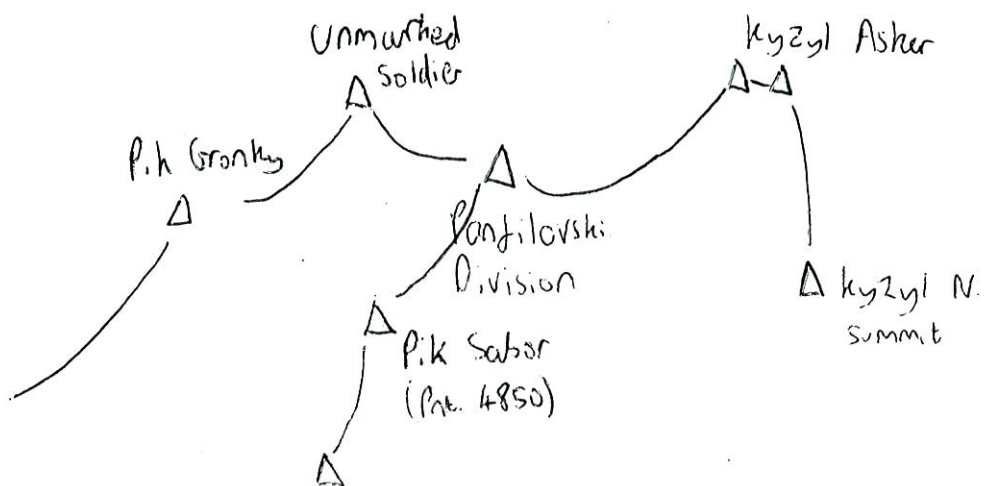 Unmarked
Soldier
Kyzyl Asker
Pik Gronky
Panfilovski
Division
Kyzyl N.
summit
Pik Sabor
(Pnt. 4850)